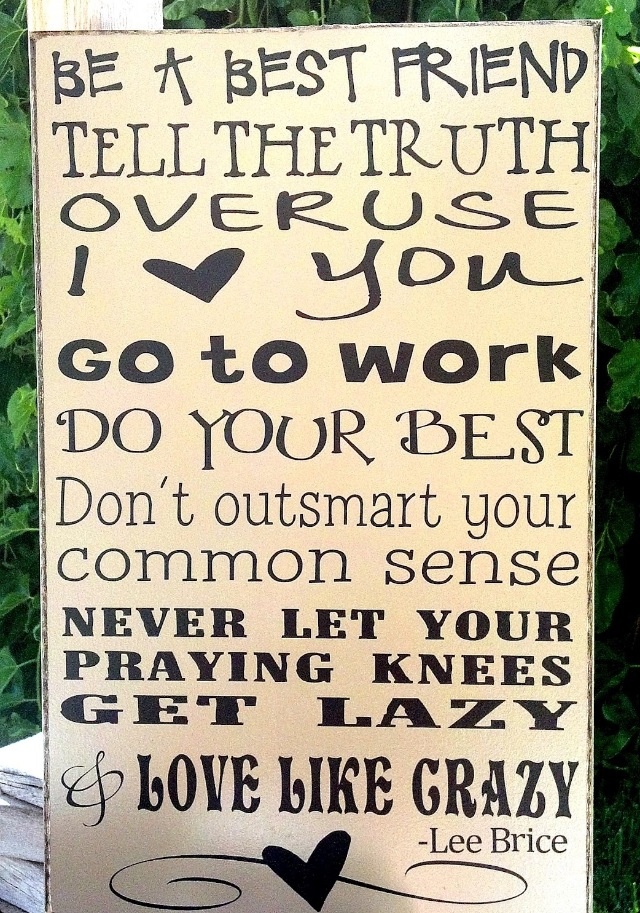 BE A BEST FRIEND
TELL THE TRUTH
OVERUSE
I ♥ you
Go to work
DO YOUR BEST
Don't outsmart your
common sense
NEVER LET YOUR
PRAYING KNEES
GET LAZY
& LOVE LIKE CRAZY
-Lee Brice